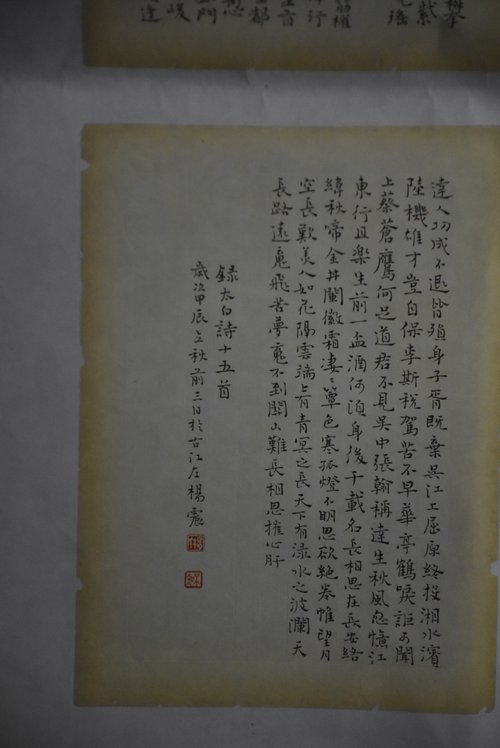 達人功成不退皆殞身子胥既棄吳江上屈原終投湘水濱
陸機雄才豈自保李斯稅駕苦不早華亭鶴唳詎可聞
上蔡蒼鷹何足道君不見吳中張翰稱達生秋風忽憶江
東行且樂生前一盃酒何須身後千載名長相思在長安絡
緯秋啼金井闌微霜淒〻簟色寒孤燈不明思欲絕卷帷望月
空長歎美人如花隔雲端上有青冥之長天下有淥水之波瀾天
長路遠魂飛苦夢魂不到關山難長相思摧心肝
錄太白詩十五首
歲次甲辰立秋前三日於古江左楊震